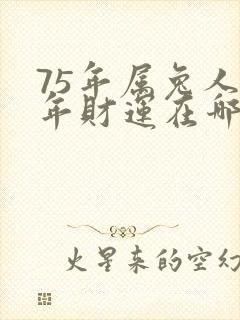 75年属兔人
年财运在哪
火星来的空幻